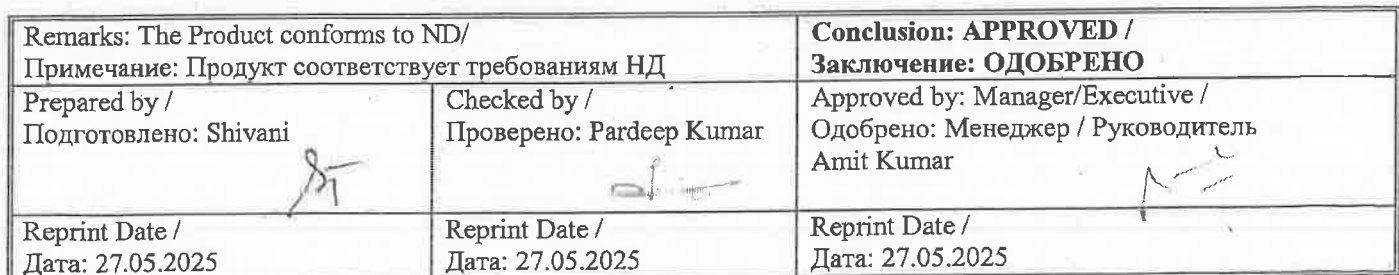 Remarks: The Product conforms to ND/
Примечание: Продукт соответствует требованиям НД
Conclusion: APPROVED /
Заключение: ОДОБРЕНО
Prepared by /
Подготовлено: Shivani
Checked by /
Проверено: Pardeep Kumar
Approved by: Manager/Executive /
Одобрено: Менеджер / Руководитель
Amit Kumar
Reprint Date /
Дата: 27.05.2025
Reprint Date /
Дата: 27.05.2025
Reprint Date /
Дата: 27.05.2025